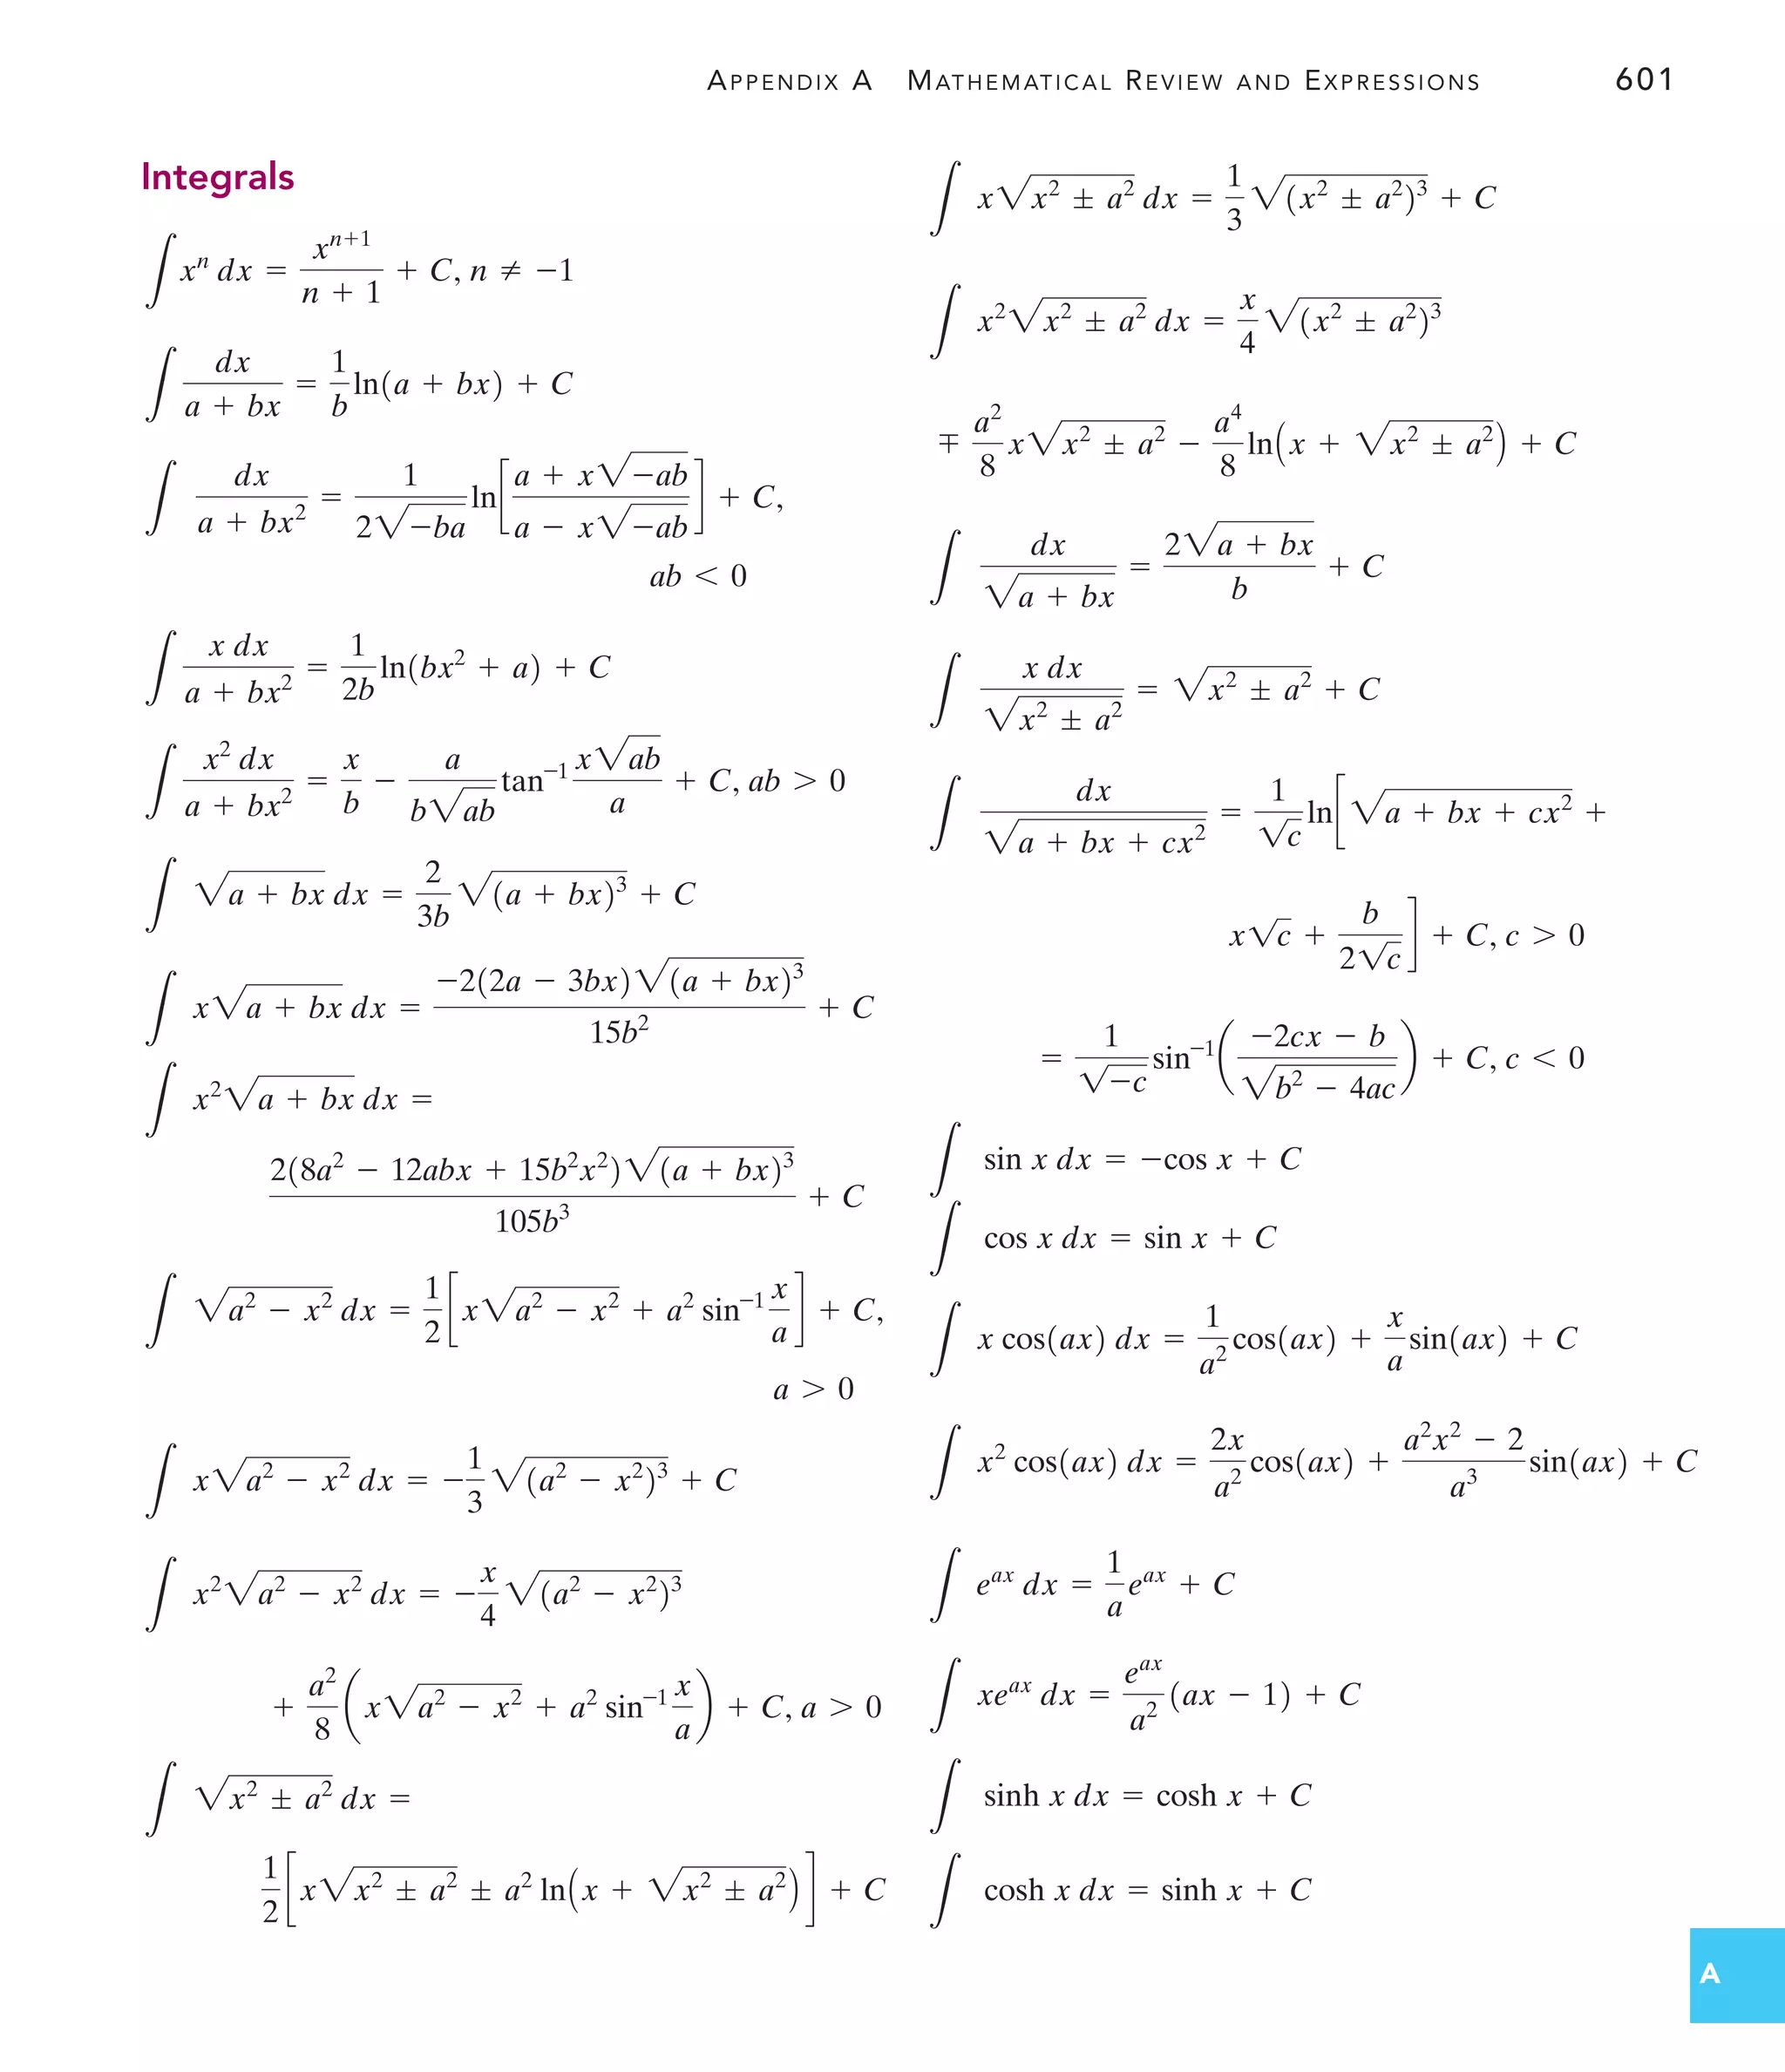 APPENDIX A MATHEMATICAL REVIEW AND EXPRESSIONS 601
Integrals
∫ xⁿ dx = xⁿ⁺¹/(n + 1) + C, n ≠ −1
∫ dx/(a + bx) = (1/b) ln(a + bx) + C
∫ dx/(a + bx²) = 1/(2√(−ba)) ln[(a + x√(−ab))/(a − x√(−ab))] + C,
ab < 0
∫ x dx/(a + bx²) = (1/2b) ln(bx² + a) + C
∫ x² dx/(a + bx²) = x/b − a/(b√(ab)) tan⁻¹ (x√(ab))/a + C, ab > 0
∫ √(a + bx) dx = (2/3b) √((a + bx)³) + C
∫ x√(a + bx) dx = −2(2a − 3bx)√((a + bx)³)/(15b²) + C
∫ x²√(a + bx) dx =
2(8a² − 12abx + 15b²x²)√((a + bx)³)/(105b³) + C
∫ √(a² − x²) dx = (1/2)[x√(a² − x²) + a² sin⁻¹ (x/a)] + C,
a > 0
∫ x√(a² − x²) dx = −(1/3)√((a² − x²)³) + C
∫ x²√(a² − x²) dx = −(x/4)√((a² − x²)³)
+ (a²/8)(x√(a² − x²) + a² sin⁻¹ (x/a)) + C, a > 0
∫ √(x² ± a²) dx =
(1/2)[x√(x² ± a²) ± a² ln(x + √(x² ± a²))] + C
∫ x√(x² ± a²) dx = (1/3)√((x² ± a²)³) + C
∫ x²√(x² ± a²) dx = (x/4)√((x² ± a²)³)
∓ (a²/8) x√(x² ± a²) − (a⁴/8) ln(x + √(x² ± a²)) + C
∫ dx/√(a + bx) = 2√(a + bx)/b + C
∫ x dx/√(x² ± a²) = √(x² ± a²) + C
∫ dx/√(a + bx + cx²) = (1/√c) ln[√(a + bx + cx²) +
x√c + b/(2√c)] + C, c > 0
= (1/√(−c)) sin⁻¹((−2cx − b)/√(b² − 4ac)) + C, c < 0
∫ sin x dx = −cos x + C
∫ cos x dx = sin x + C
∫ x cos(ax) dx = (1/a²) cos(ax) + (x/a) sin(ax) + C
∫ x² cos(ax) dx = (2x/a²) cos(ax) + ((a²x² − 2)/a³) sin(ax) + C
∫ eᵃˣ dx = (1/a) eᵃˣ + C
∫ xeᵃˣ dx = (eᵃˣ/a²)(ax − 1) + C
∫ sinh x dx = cosh x + C
∫ cosh x dx = sinh x + C
A